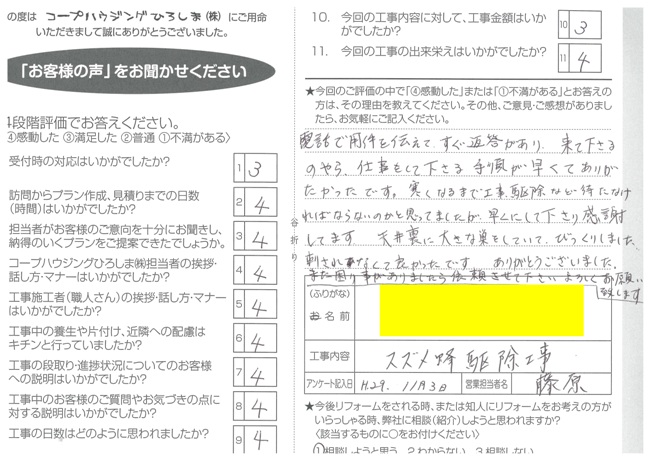 の度は コープハウジングひろしま(株) にご用命
いただきまして誠にありがとうございました。
「お客様の声」をお聞かせください
4段階評価でお答えください。
④感動した ③満足した ②普通 ①不満がある〉
受付時の対応はいかがでしたか?
1 3
訪問からプラン作成、見積りまでの日数
(時間)はいかがでしたか?
2 4
担当者がお客様のご意向を十分にお聞きし、
納得のいくプランをご提案できたでしょうか。
3 4
コープハウジングひろしま㈱担当者の挨拶・
話し方・マナーはいかがでしたか?
4 4
工事施工者(職人さん)の挨拶・話し方・マナー
はいかがでしたか?
5 4
工事中の養生や片付け、近隣への配慮は
キチンと行っていましたか?
6 4
工事の段取り・進捗状況についてのお客様
への説明はいかがでしたか?
7 4
工事中のお客様のご質問やお気づきの点に
対する説明はいかがでしたか?
8 4
工事の日数はどのように思われましたか?
9 4
谷折り
10. 今回の工事内容に対して、工事金額はいか
がでしたか?
10 3
11. 今回の工事の出来栄えはいかがでしたか?
11 4
★今回のご評価の中で「④感動した」または「①不満がある」とお答えの
方は、その理由を教えてください。その他、ご意見・ご感想がありました
ら、お気軽にご記入ください。
電話で用件を伝えて、すぐ返答があり、来て下さる
のやら、仕事をして下さる手順が早くてありが
たかったです。寒くなるまで工事、駆除など待たなけ
ればならないのかと思ってましたが、早くにして下さり感謝
してます 天井裏に大きな巣をしていて、びっくりしました、
刺されなくて良かったです。ありがとうございました。
また困り事がありましたら依頼させて下さいよろしくお願い
致します
(ふりがな)
お名前
工事内容 スズメ蜂駆除工事
アンケート記入日 H.29. 11月3日 営業担当者名 藤原
★今後リフォームをされる時、または知人にリフォームをお考えの方が
いらっしゃる時、弊社に相談(紹介)しようと思われますか?
〈該当するものに○をお付けください〉
①相談しようと思う 2.わからない 3.相談しない